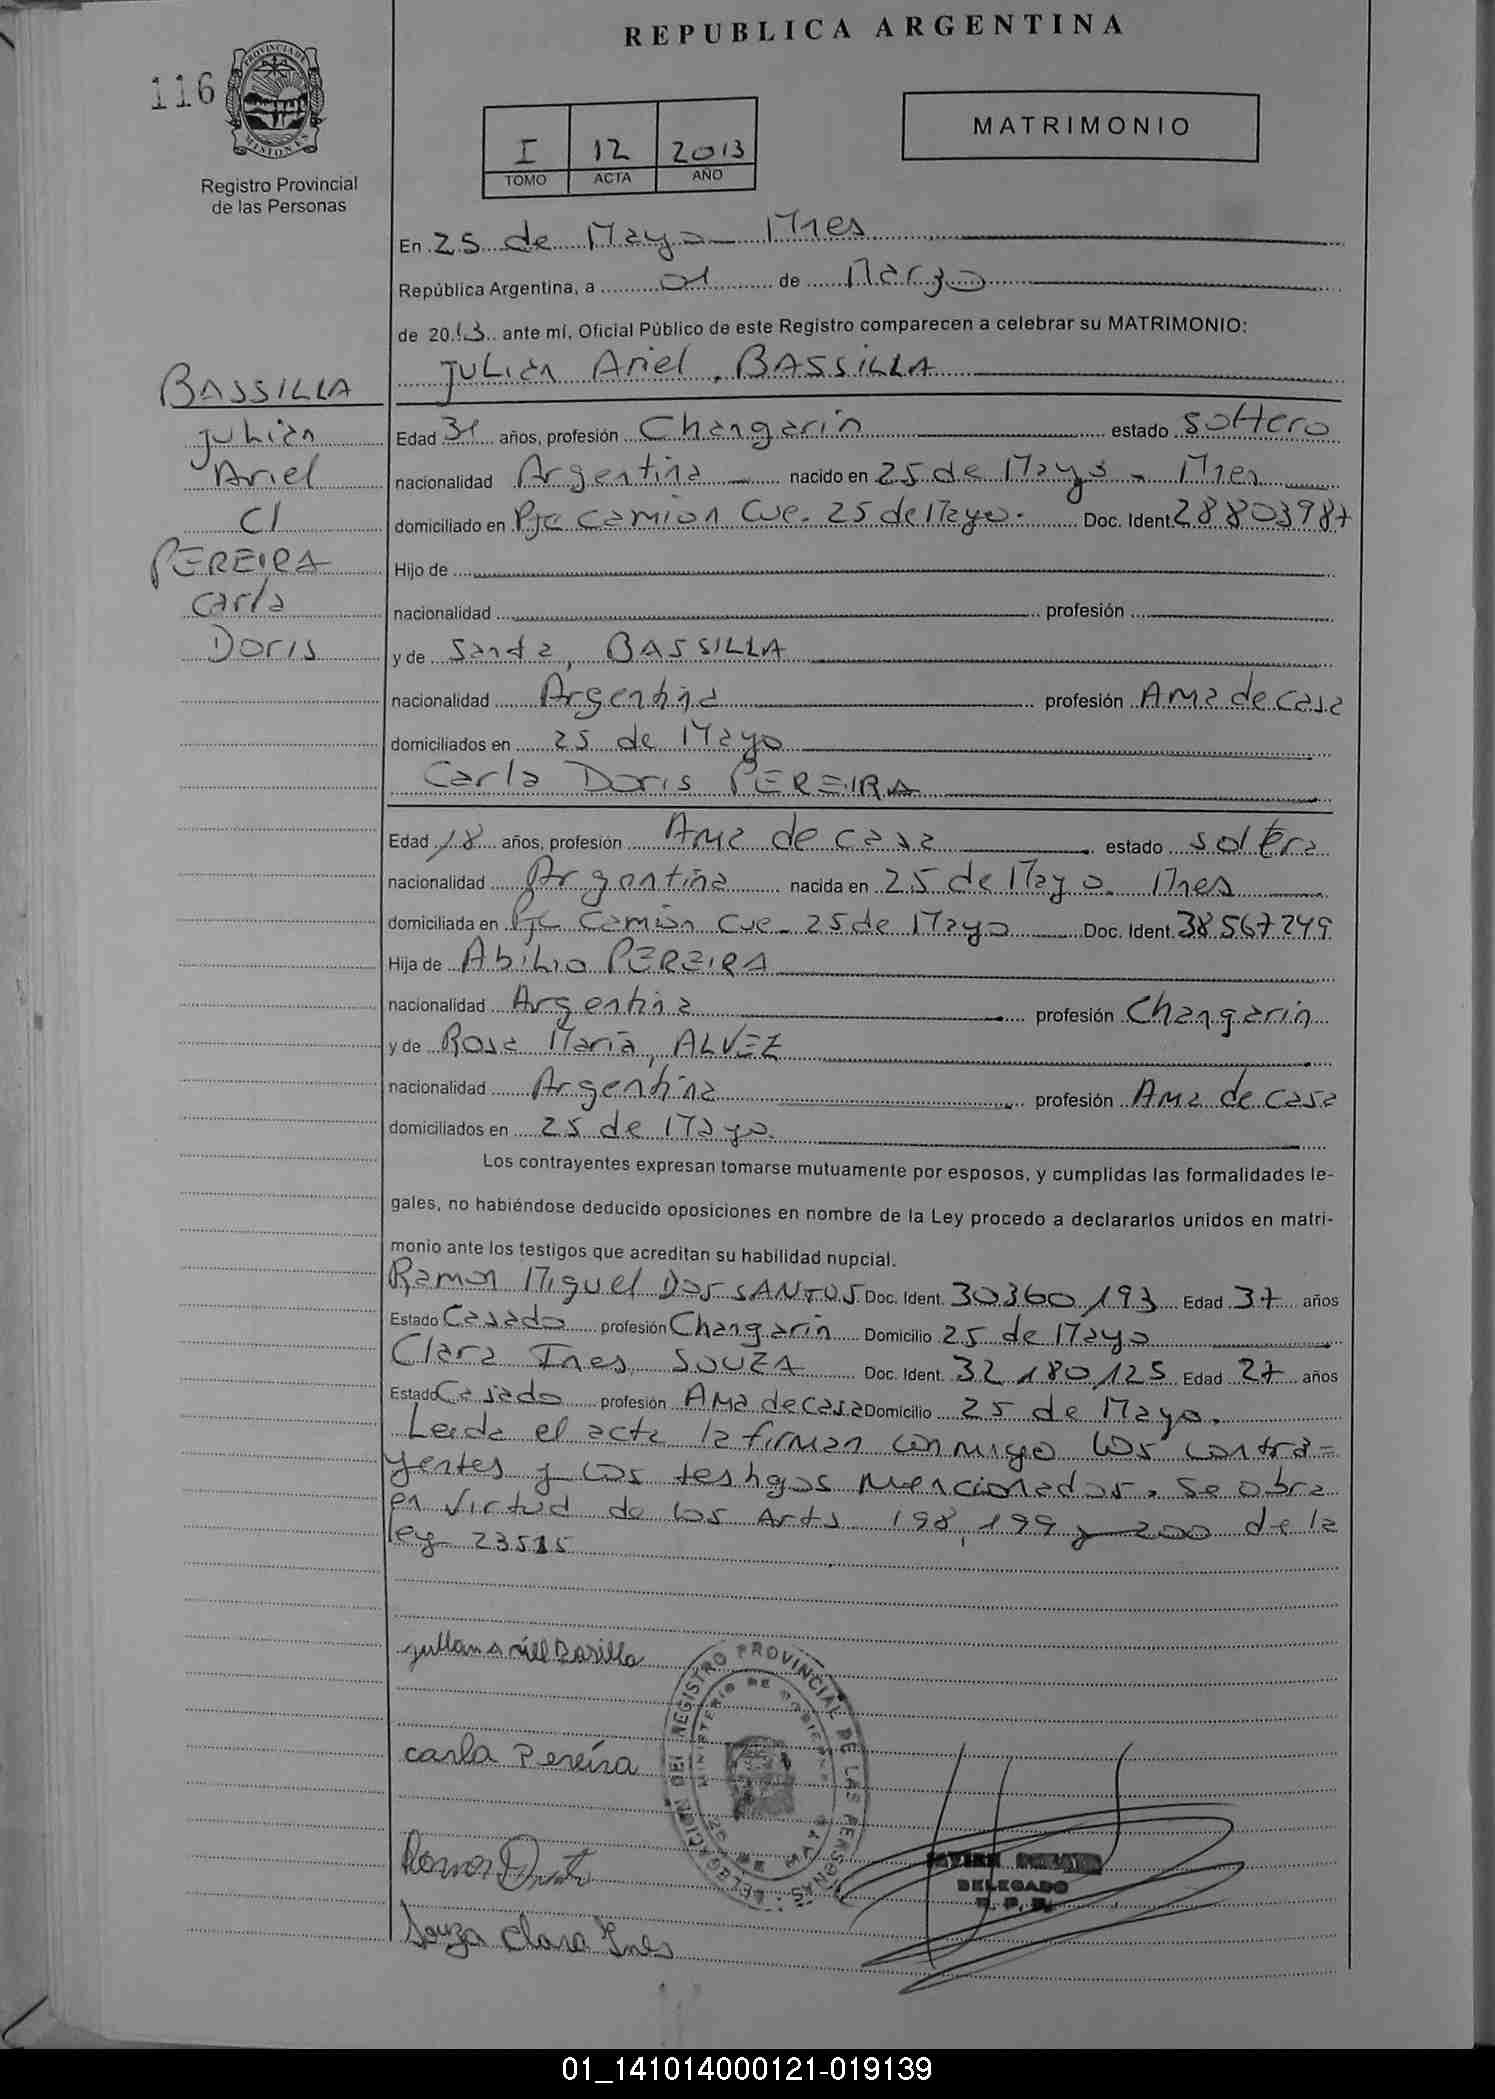 REPUBLICA ARGENTINA
116
PROVINCIA DE
MISIONES
Registro Provincial
de las Personas
I 12 2013
TOMO ACTA AÑO
MATRIMONIO
En 25 de Mayo - Mnes
República Argentina, a 01 de Marzo
de 2013 ante mí, Oficial Público de este Registro comparecen a celebrar su MATRIMONIO:
Julián Ariel, BASSILLA
BASSILLA
Julián
Ariel
C/
PEREIRA
Carla
Doris
Edad 31 años, profesión Changarín estado soltero
nacionalidad Argentina nacido en 25 de Mayo - Mnes
domiciliado en Pje Camión Cue. 25 de Mayo. Doc. Ident. 28803987
Hijo de
nacionalidad profesión
y de Santa, BASSILLA
nacionalidad Argentina profesión Ama de casa
domiciliados en 25 de Mayo
Carla Doris PEREIRA
Edad 18 años, profesión Ama de casa estado soltera
nacionalidad Argentina nacida en 25 de Mayo. Mnes
domiciliada en Pje Camión Cue. 25 de Mayo Doc. Ident. 38567249
Hija de Abilio PEREIRA
nacionalidad Argentina profesión Changarín
y de Rosa María, ALVEZ
nacionalidad Argentina profesión Ama de casa
domiciliados en 25 de Mayo.
Los contrayentes expresan tomarse mutuamente por esposos, y cumplidas las formalidades le-
gales, no habiéndose deducido oposiciones en nombre de la Ley procedo a declararlos unidos en matri-
monio ante los testigos que acreditan su habilidad nupcial.
Ramon Miguel DOS SANTOS Doc. Ident. 30360193 Edad 37 años
Estado Casado profesión Changarín Domicilio 25 de Mayo
Clara Ines, SOUZA Doc. Ident. 32,180,125 Edad 27 años
Estado Casado profesión Ama de casa Domicilio 25 de Mayo.
Leida el acta la firman conmigo los contra=
yentes y los testigos mencionados. Se obra
en virtud de los Arts 198, 199 y 200 de la
ley 23515
Julian Ariel Basilla
Carla Pereira
DELEGACION DEL REGISTRO PROVINCIAL DE LAS PERSONAS
MINISTERIO DE GOBIERNO
25 DE MAYO
Souza Clara Ines
DELEGADO
01_141014000121-019139